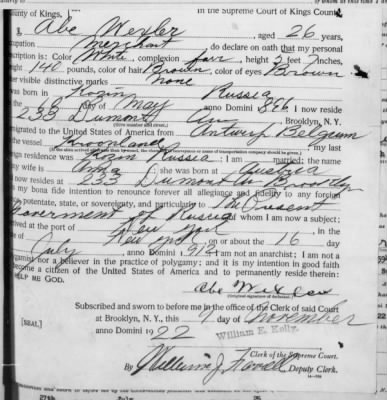 of Kings,
In the Supreme Court of Kings County,
I, Abe Wexler, aged 26 years,
occupation Merchant do declare on oath that my personal
description is: Color White, complexion fair, height 5 feet 7 inches,
weight 140 pounds, color of hair Brown, color of eyes Brown
other visible distinctive marks none
I was born in Rozin Russia
on the day of May anno Domini 1896 I now reside
at 233 Dumont Ave Brooklyn, N. Y.
emigrated to the United States of America from Antwerp Belgium
on the vessel Kroonland, my last
(If the alien arrived otherwise than by vessel, the character of conveyance or name of transportation company should be given.)
foreign residence was Rozin Russia; I am married; the name
of my wife is Anna; she was born at Austria
and now resides at 233 Dumont Av Brooklyn
It is my bona fide intention to renounce forever all allegiance and fidelity to any foreign
prince, potentate, state, or sovereignty, and particularly to The Present
Government of Russia of whom I am now a subject;
I arrived at the port of New York
New York on or about the 16 day
of July, anno Domini 1912; I am not an anarchist; I am not a
polygamist nor a believer in the practice of polygamy; and it is my intention in good faith
to become a citizen of the United States of America and to permanently reside therein:
SO HELP ME GOD.
Abe Wexler
(Original signature of declarant.)
Subscribed and sworn to before me in the office of the Clerk of said Court
at Brooklyn, N. Y., this 9 day of November
anno Domini 1922
[SEAL]
William E. Kelly,
Clerk of the Supreme Court.
By William J. Deputy Clerk.